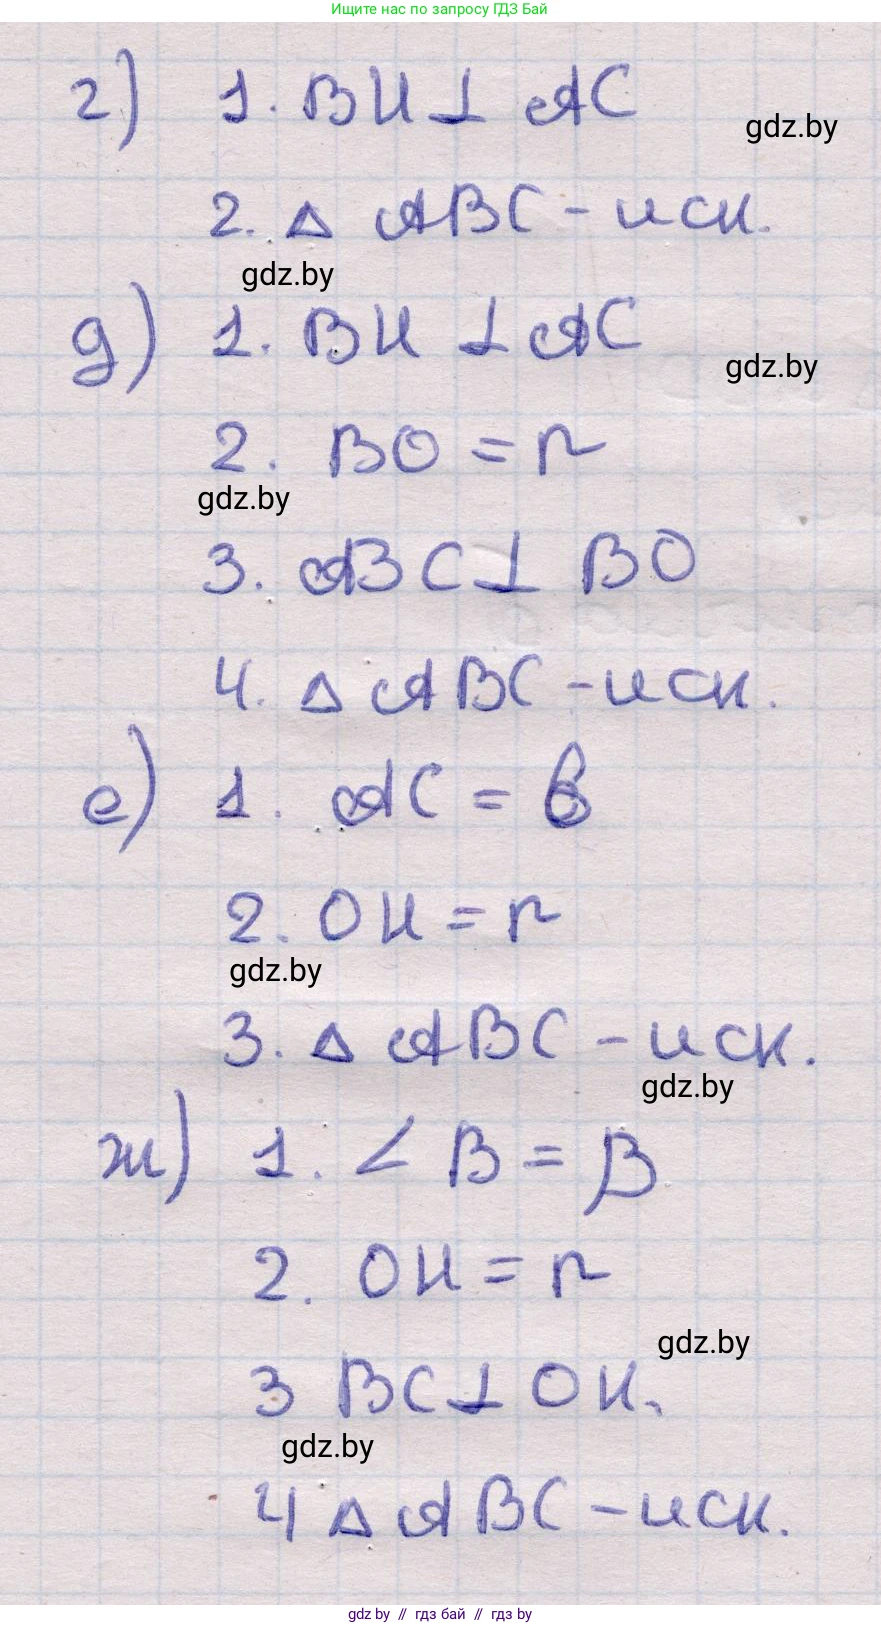 Ищите нас по запросу ГДЗ Бай
г) 1. BH ⊥ AC
gdz.by
2. △ ABC - иск.
gdz.by
д) 1. BH ⊥ AC
gdz.by
2. BO = r
gdz.by
3. ABC ⊥ BO
4. △ ABC - иск.
е) 1. AC = b
2. OH = r
gdz.by
3. △ ABC - иск.
gdz.by
ж) 1. ∠ B = β
2. OH = r
gdz.by
3 BC ⊥ OH.
gdz.by
4 △ ABC - иск.
gdz by // гдз бай // gdz by